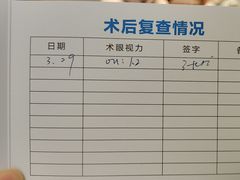 术后复查情况
日期 术眼视力 签字
3.29 OU: 1.2